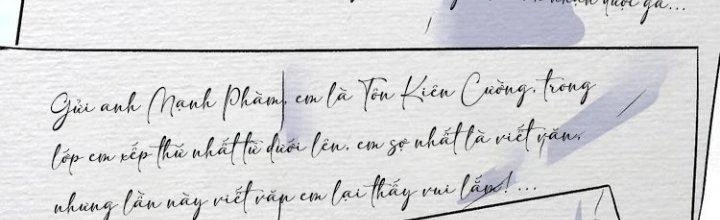 Gửi anh Mạnh Phàm, em là Tôn Kiên Cường, trong
lớp em xếp thứ nhất từ dưới lên, em sợ nhất là viết văn,
nhưng lần này viết văn em lại thấy vui lắm! ...